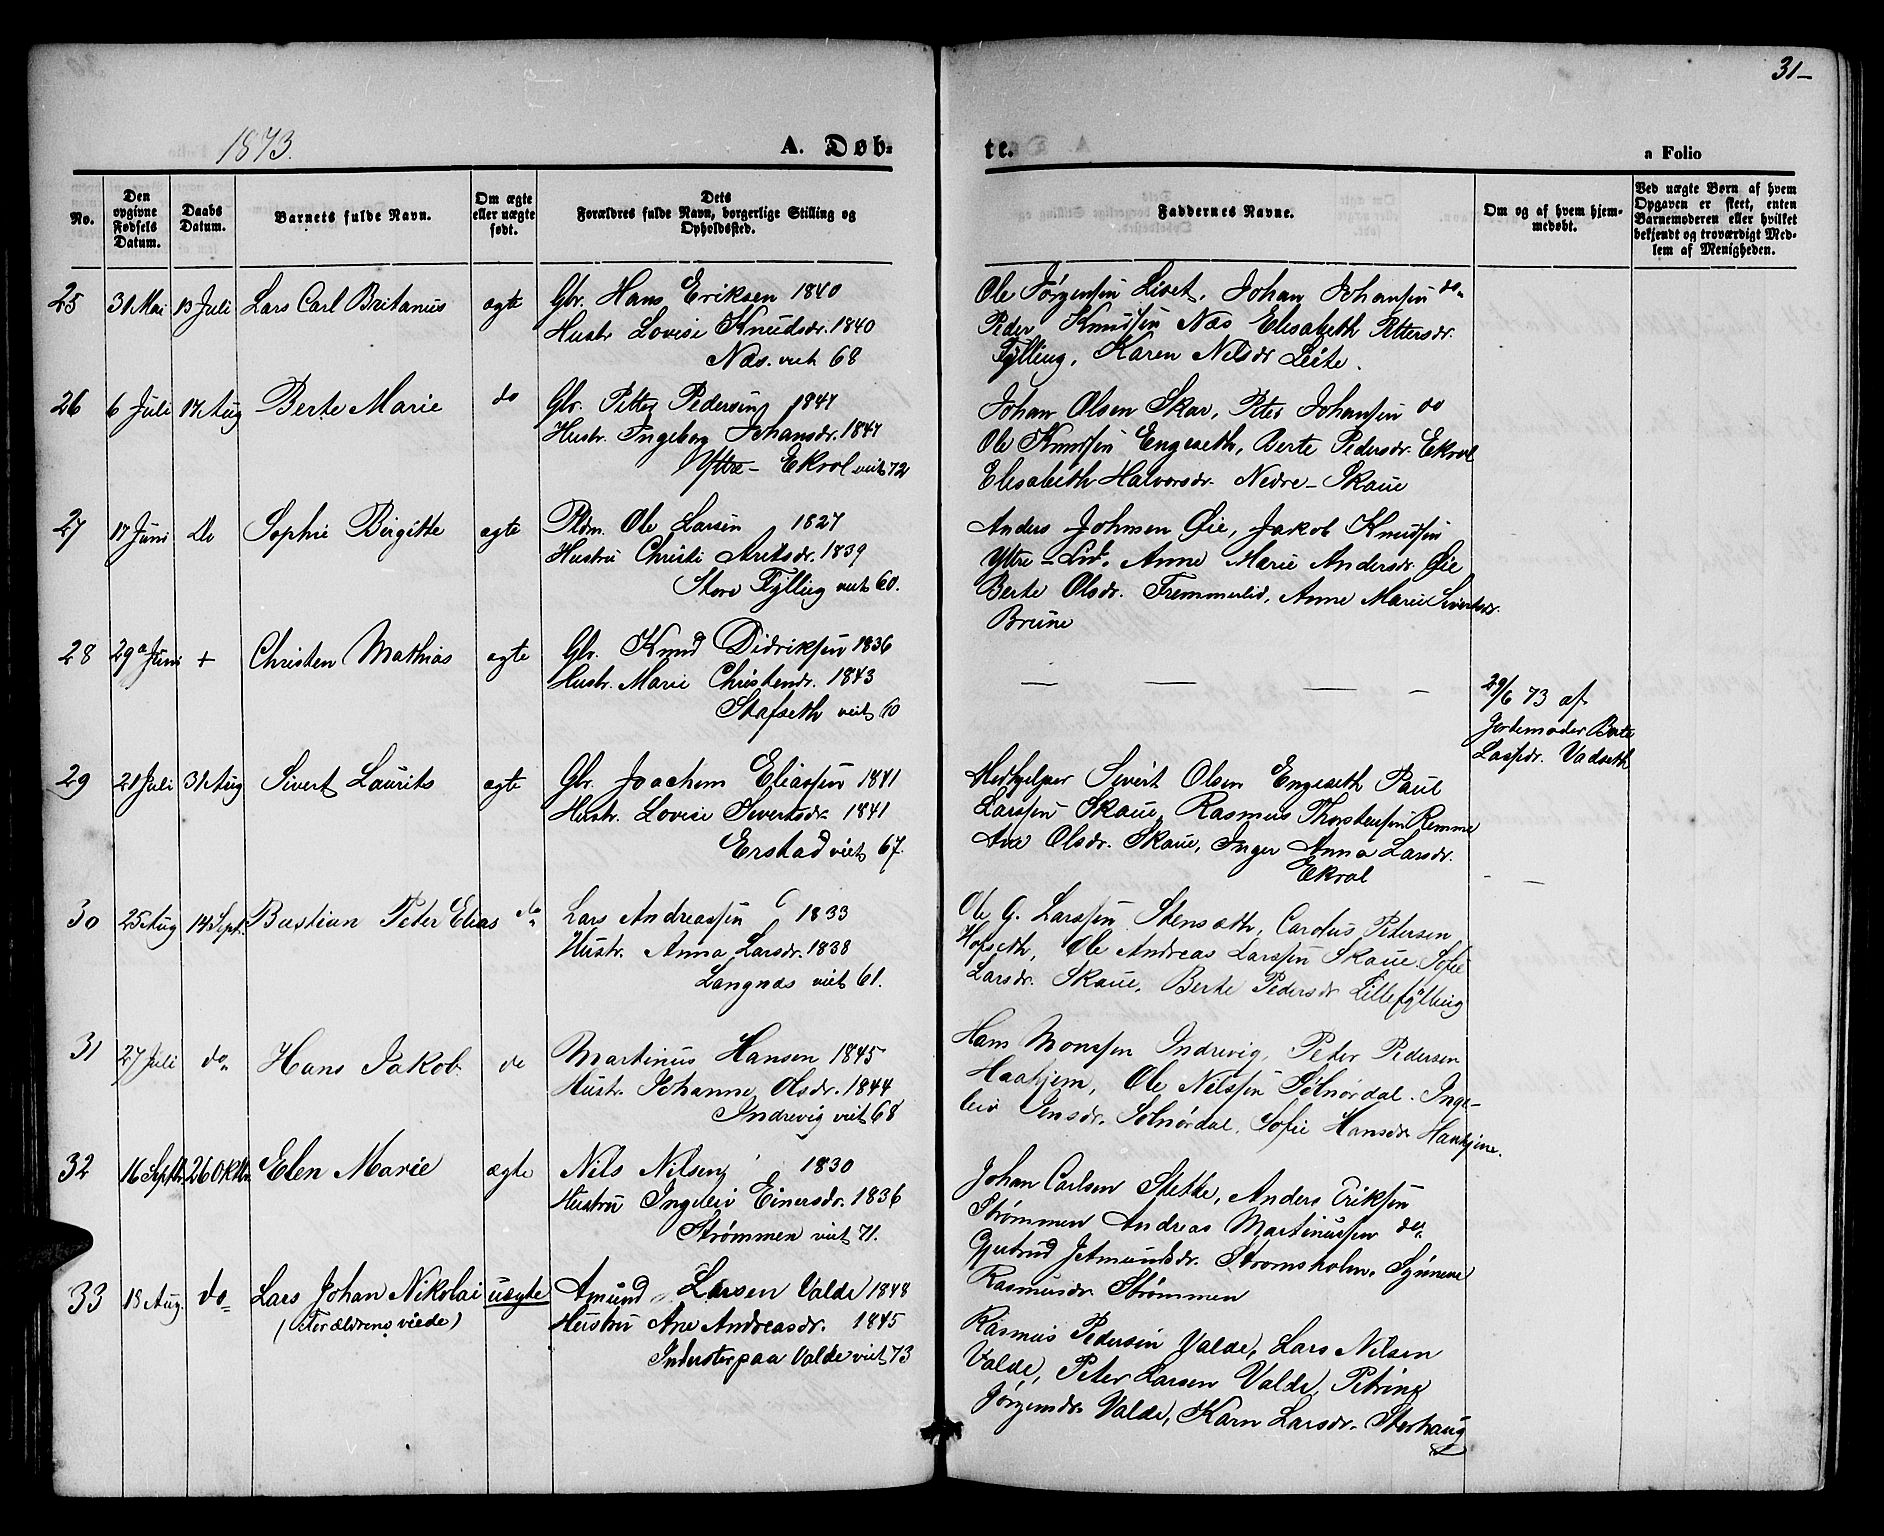 31-
1873.
A. Døb-
te.
a Folio
No.
Den opgivne Fødsels Datum.
Daabs Datum.
Barnets fulde Navn.
Om ægte eller uægte født.
Dets Forældres fulde Navn, borgerlige Stilling og Opholdssted.
Faddernes Navne.
Om og af hvem hjemmedøbt.
Ved uægte Børn af hvem Opgaven er skeet, enten Barnemoderen eller hvilket bekjendt og troværdigt Medlem af Menigheden.
25 31 Mai 13 Juli Lars Carl Britanus ægte Gbr. Hans Eriksen 1840
Hustr Lovise Knudsdr. 1840
Næs. viet 68
Ole Jørgensen Livet, Johan Johansen do
Peder Knudsen Næs Elisabeth Pettersdr.
Fylling, Karen Nilsdr Leite.
26 6 Juli 17 Aug Berte Marie do Gbr. Petter Pedersen 1847
Hustr. Ingeborg Johansdr. 1847
Yttre- Ekrol viet 72
Johan Olsen Skar, Peter Johansen do
Ole Knudsen Engeseth, Berte Pedersdr. Ekrol
Elisabeth Halvorsdr. Nedre-Skaue
27 17 Juni Do Sophie Birgitte ægte Pldm. Ole Larsen 1827
Hustru Christi Arntsdr. 1839
Store Fylling viet 60.
Anders Johnsen Øie, Jakob Knudsen
Yttre-Lid. Anne Marie Andersdr. Øie
Berte Olsdr. Fremmerlid, Anne Marie Sivertsdr.
Brune
28 29 Juni + Christen Mathias ægte Gbr. Knud Didriksen 1836
Hustr. Marie Christendr. 1843
Stafseth viet 60
— — — —
29/6 73 af
Jordemoder Berte
Larsdr. Vadseth
29 21 Juli 31 Aug Sivert Laurits ægte Gbr. Joachim Eliassen 1841
Hustr. Lovise Sivertsdr 1841
Erstad viet 67.
Medhjelper Sivert Olsen Engeseth Paul
Larssen Skaue, Rasmus Thorstensen Remme
Ane Olsdr. Skaue, Inger Anna Larsdr.
Ekrol
- -
30 25 Aug 14 Sept. Bastian Peter Elias do Lars Andreassen 1833
Hustr. Anna Larsdr. 1838
Langnæs viet 61.
Ole G. Larssen Stensæth, Carolus Petersen
Hofseth, Ole Andreas Larssen Skaue. Sofie
Larsdr. Skaue, Berte Pedersdr Lillefylling
31 27 Juli do Hans Jakob do Martinus Hansen 1845
Hustr. Johanne Olsdr. 1844
Indrevig viet 68
Hans Monssen Indrevig, Peter Pedersen
Haahjem, Ole Nilssen Solnørdal. Inge-
leiv Jensdr. Solnørdal, Sofie Hansdr Haahjem.
32 16 Septbr. 26 Oktbr. Elen Marie ægte Nils Nilsen 1830
Hustru Ingeleiv Einersdr. 1836
Strømmen viet 71.
Johan Carlsen Stette, Anders Eriksen
Strømmen Andreas Martinussen do
Gjertrud Jetmundsdr. Stromsholm. Synneve
Rasmusdr Strømmen
33 18 Aug. do Lars Johan Nikolai uægte Amund Larsen Valde 1848
(Forældrene viede) Hustru Ane Andreasdr. 1845
Inderster paa Valde viet 73
Rasmus Pedersen Valde, Lars Nilsen
Valde, Peter Larsen Valde, Petrine
Jørgensdr Valde, Karn Larsdr. Storhaug